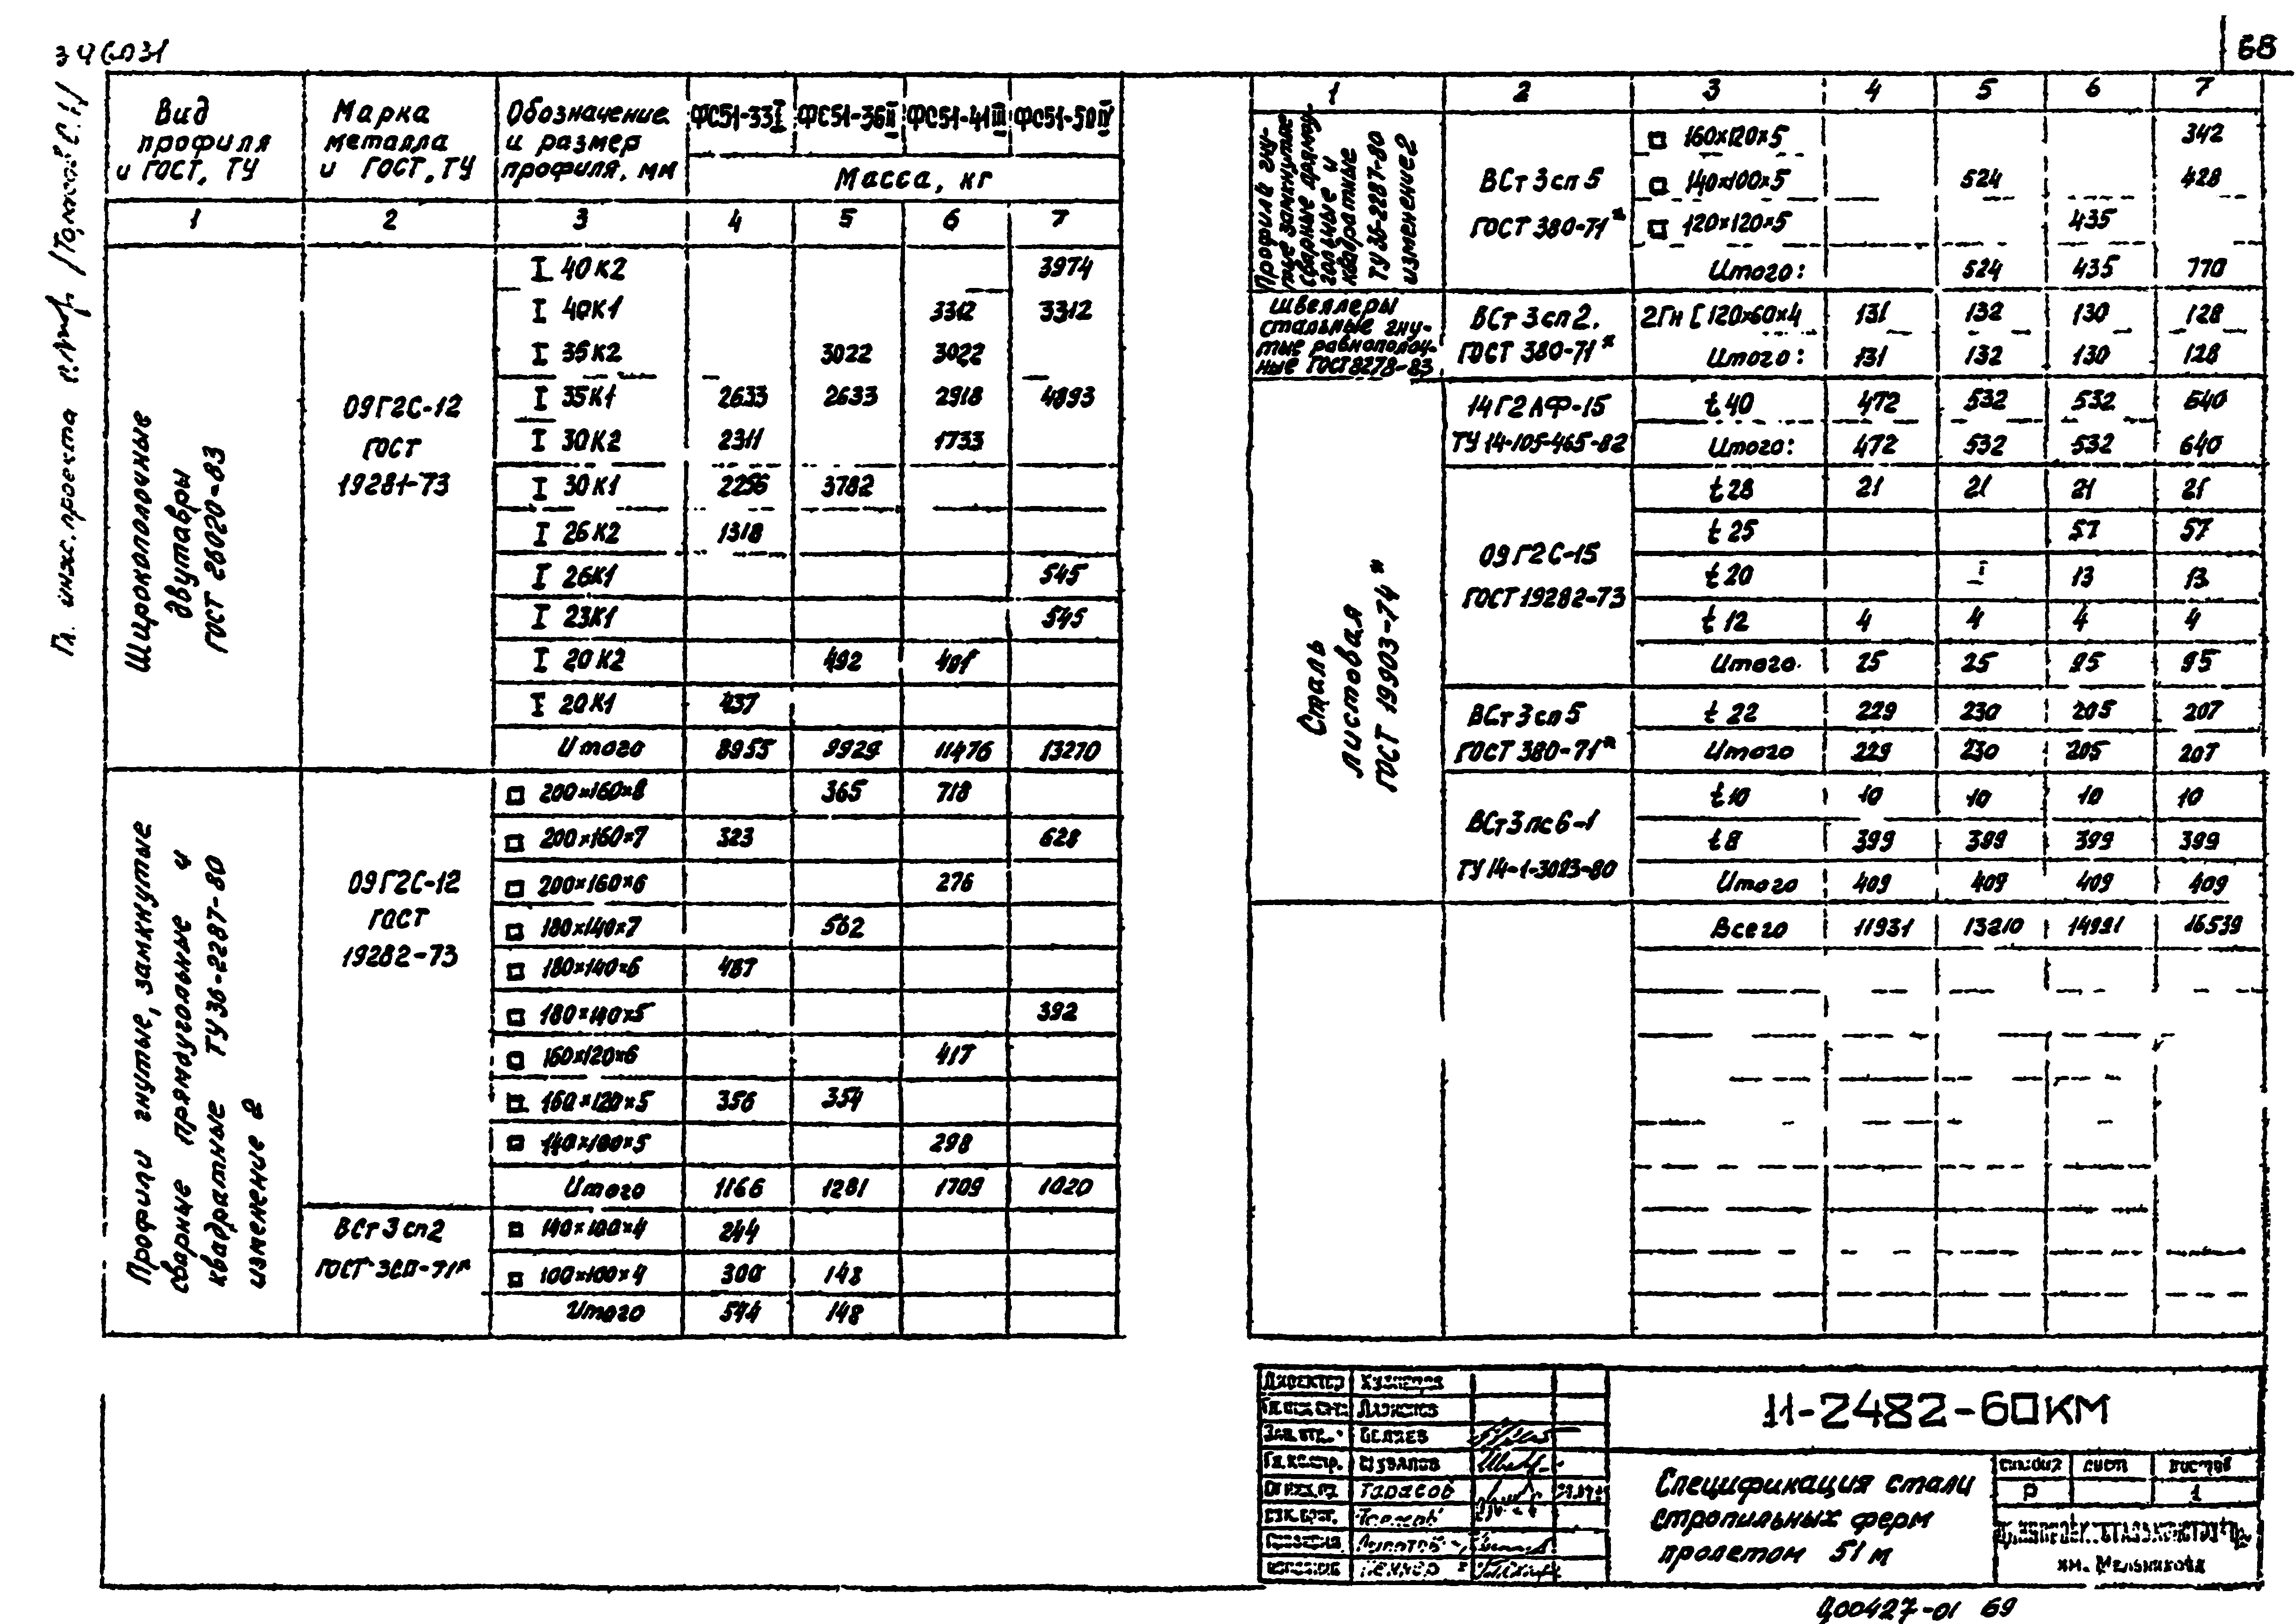 68
Вид профиля и ГОСТ, ТУ
Марка металла и ГОСТ, ТУ
Обозначение и размер профиля, мм
ФС51-33I ФС51-36II ФС51-41III ФС51-50IV
Масса, кг
1 2 3 4 5 6 7
Широкополочные двутавры ГОСТ 26020-83
09Г2С-12 ГОСТ 19281-73
I 40К2 3974
I 40К1 3312 3312
I 35К2 3022 3022
I 35К1 2633 2633 2918 4893
I 30К2 2311 1733
I 30К1 2256 3782
I 26К2 1318
I 26К1 545
I 23К1 545
I 20К2 492 491
I 20К1 437
Итого 8955 9929 11476 13270
Профили гнутые, замкнутые сварные прямоугольные и квадратные ТУ36-2287-80 изменение 2
09Г2С-12 ГОСТ 19282-73
□ 200×160×8 365 718
□ 200×160×7 323 628
□ 200×160×6 276
□ 180×140×7 562
□ 180×140×6 487
□ 180×140×5 392
□ 160×120×6 417
□ 160×120×5 356 354
□ 140×100×5 298
Итого 1166 1281 1709 1020
ВСт3сп2
□ 140×100×4 244
□ 100×100×4 300 148
Итого 544 148
1 2 3 4 5 6 7
Профили гнутые замкнутые сварные прямоугольные и квадратные ТУ36-2287-80 изменение 2
ВСт3сп5 ГОСТ 380-71*
□ 160×120×5 342
□ 140×100×5 524 428
□ 120×120×5 435
Итого: 524 435 770
швеллеры стальные гнутые равнополочные ГОСТ 8278-83
ВСт3сп2. ГОСТ 380-71*
2Гн [ 120×60×4 131 132 130 128
Итого: 131 132 130 128
Сталь листовая ГОСТ 19903-74*
14Г2АФ-15 ТУ 14-105-465-82
t 40 472 532 532 640
Итого: 472 532 532 640
09Г2С-15 ГОСТ 19282-73
t 28 21 21 21 21
t 25 57 57
t 20 13 13
t 12 4 4 4 4
Итого 25 25 95 95
ВСт3сп5 ГОСТ 380-71*
t 22 229 230 205 207
Итого 229 230 205 207
ВСт3пс6-1 ТУ 14-1-3023-80
t 10 10 10 10 10
t 8 399 399 399 399
Итого 409 409 409 409
Всего 11931 13210 14991 16539
Гл. инж. проекта
Директор
Зав. отд. Беляев
Гл. констр. Шувалов
Тарасов
11-2482-60КМ
Спецификация стали
стропильных ферм
пролетом 51 м
стадия лист листов
Р 1
им. Мельникова
Ц00427-01 69